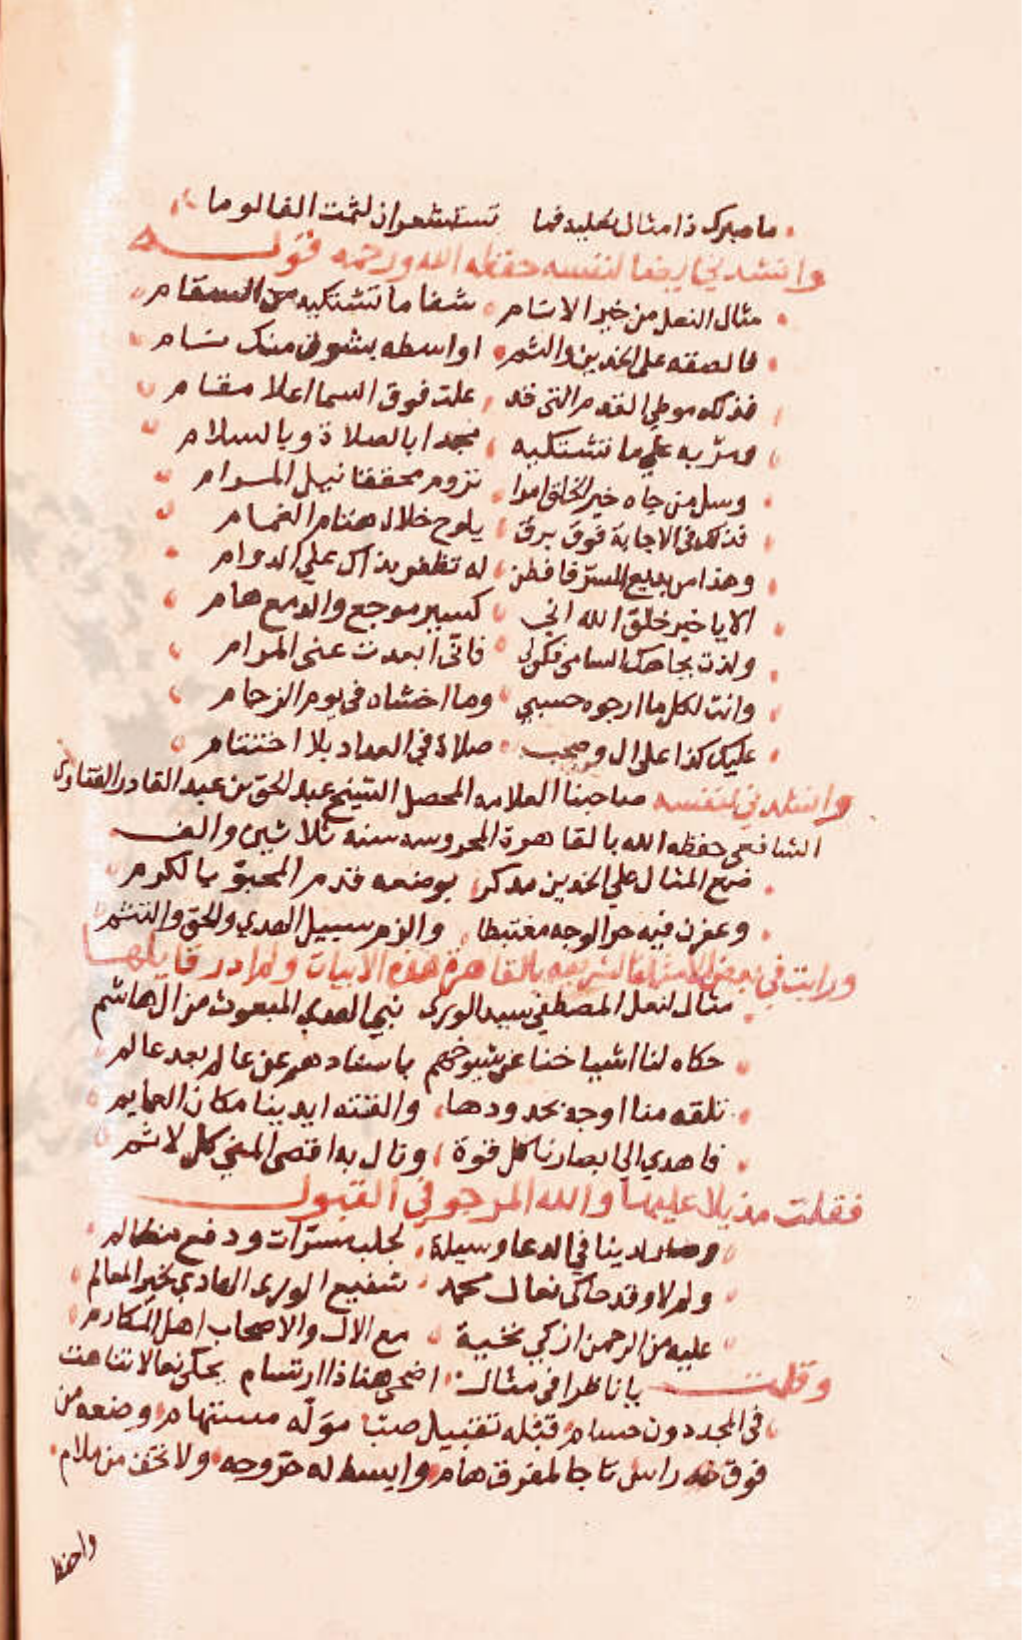 ما مبرك ذا مثال تستشعر ان لثمت الفا لوما
وانشدني ايضا لنفسه حفظه الله ورحمه قوله
مثال النعل من خير الانام شفا ما تشتكيه من السقام
فالصقه على الخدين والثم او اسطه بشوق منك سام
فذلك موطي القدم التي قد علت فوق السما اعلا مقام
ومر به علي ما تشتكيه مجدا بالصلاة وبالسلام
وسل من جاه خير الخلق امرا تروم محققا نيل المرام
فذلك في الاجابة فوق برق يلوح خلال هتام الغمام
وهذا من بديع السر فافطن له تظفر بذاك علي الدوام
الا يا خير خلق الله اني كسير موجع والدمع هام
ولذت بجاهك السامي فكن لي فاني ابعدت عني المرام
وانت لكل ما ارجوه حسبي وما اخشاه في يوم الزحام
عليك كذا على ال وصحب صلاة في العداد بلا اختتام
وانشدني لنفسه صاحبنا العلامه المحصل الشيخ عبد الحق بن عبد القادر
الشافعي حفظه الله بالقاهرة المحروسه سنه ثلاثين والف
ضع المثال علي الخدين مدكرا بوضعه قدم المحبو بالكرم
وعفرن فيه حر الوجه مغتبطا والزم سبيل الهدي والحق والتثم
ورايت في بعض الامثلة الشريفه بالقاهرة هذه الابيات ولم ادر قايلها
مثال لنعل المصطفي سيد الورى نبي الهدي المبعوث من ال هاشم
حكاه لنا اشياخنا عن شيوخهم باسنادهم عن عالم بعد عالم
تلقه منا اوجه بخدودها والفته ايدينا مكان العمايم
فاهدي الي ابصارنا كل قوة ونال به اقصى المني كل لاثم
فقلت مذيلا عليها والله المرجو في القبول
وصار لدينا في الدعا وسيلة لجلب مسرات ودفع مظالم
ولم لا وقد حاكى نعال محمد شفيع الورى الهادي لخير المعالم
عليه من الرحمن ازكي تحية مع الال والاصحاب اهل المكارم
وقلت يا ناظرا في مثال اضحى هنا ذا ارتسام يحكي نعالا تناهت
في المجد دون مسام قبله تقبيل صب موله مستهام وضعه من
فوق راس تاجا لمفرق هام وابسط له حر وجه ولا تخف من ملام
واحفظ